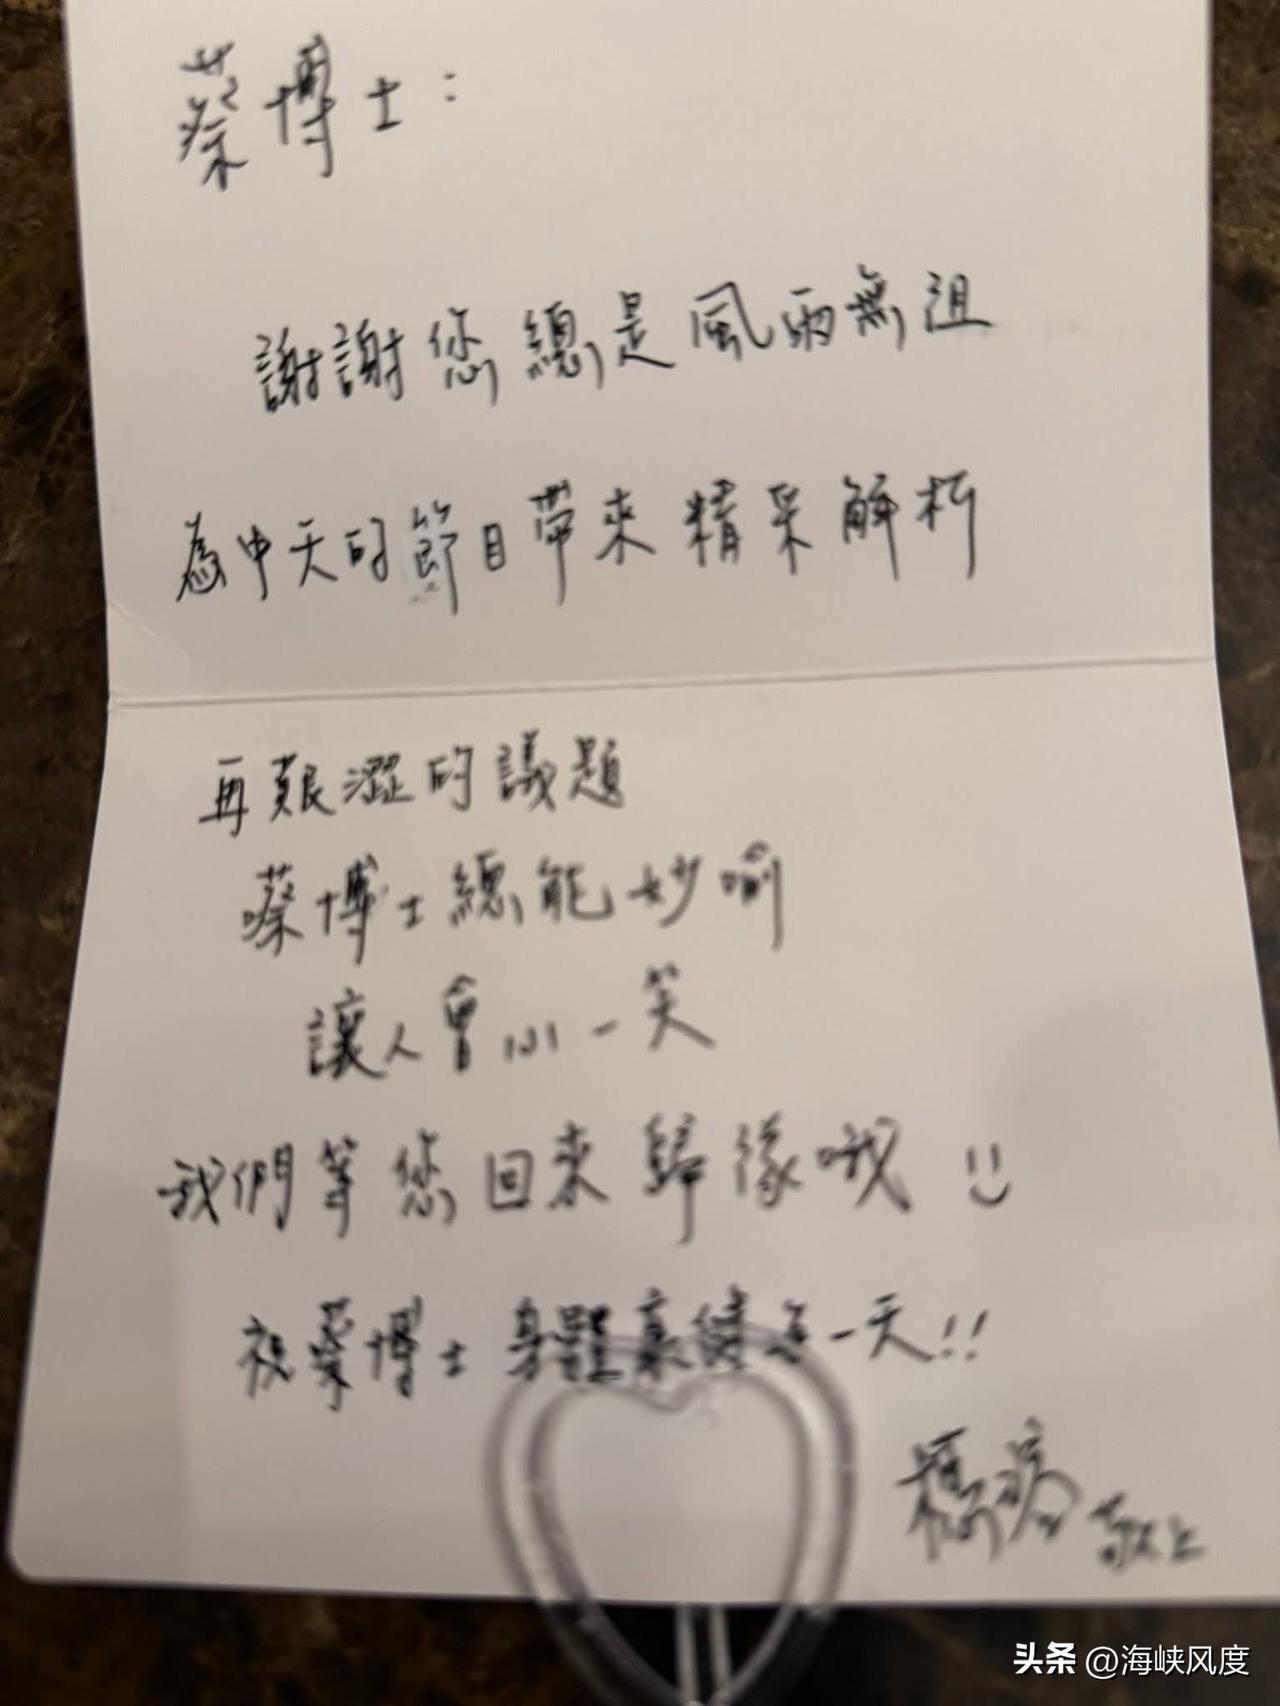 蔡博士：
謝謝您總是風雨無阻
為中天的節目帶來精采解析
再艱澀的議題
蔡博士總能妙喻
讓人會心一笑
我們等您回來歸隊哦
祝蔡博士身體康健每一天!!
敬上
头条 @海峡风度